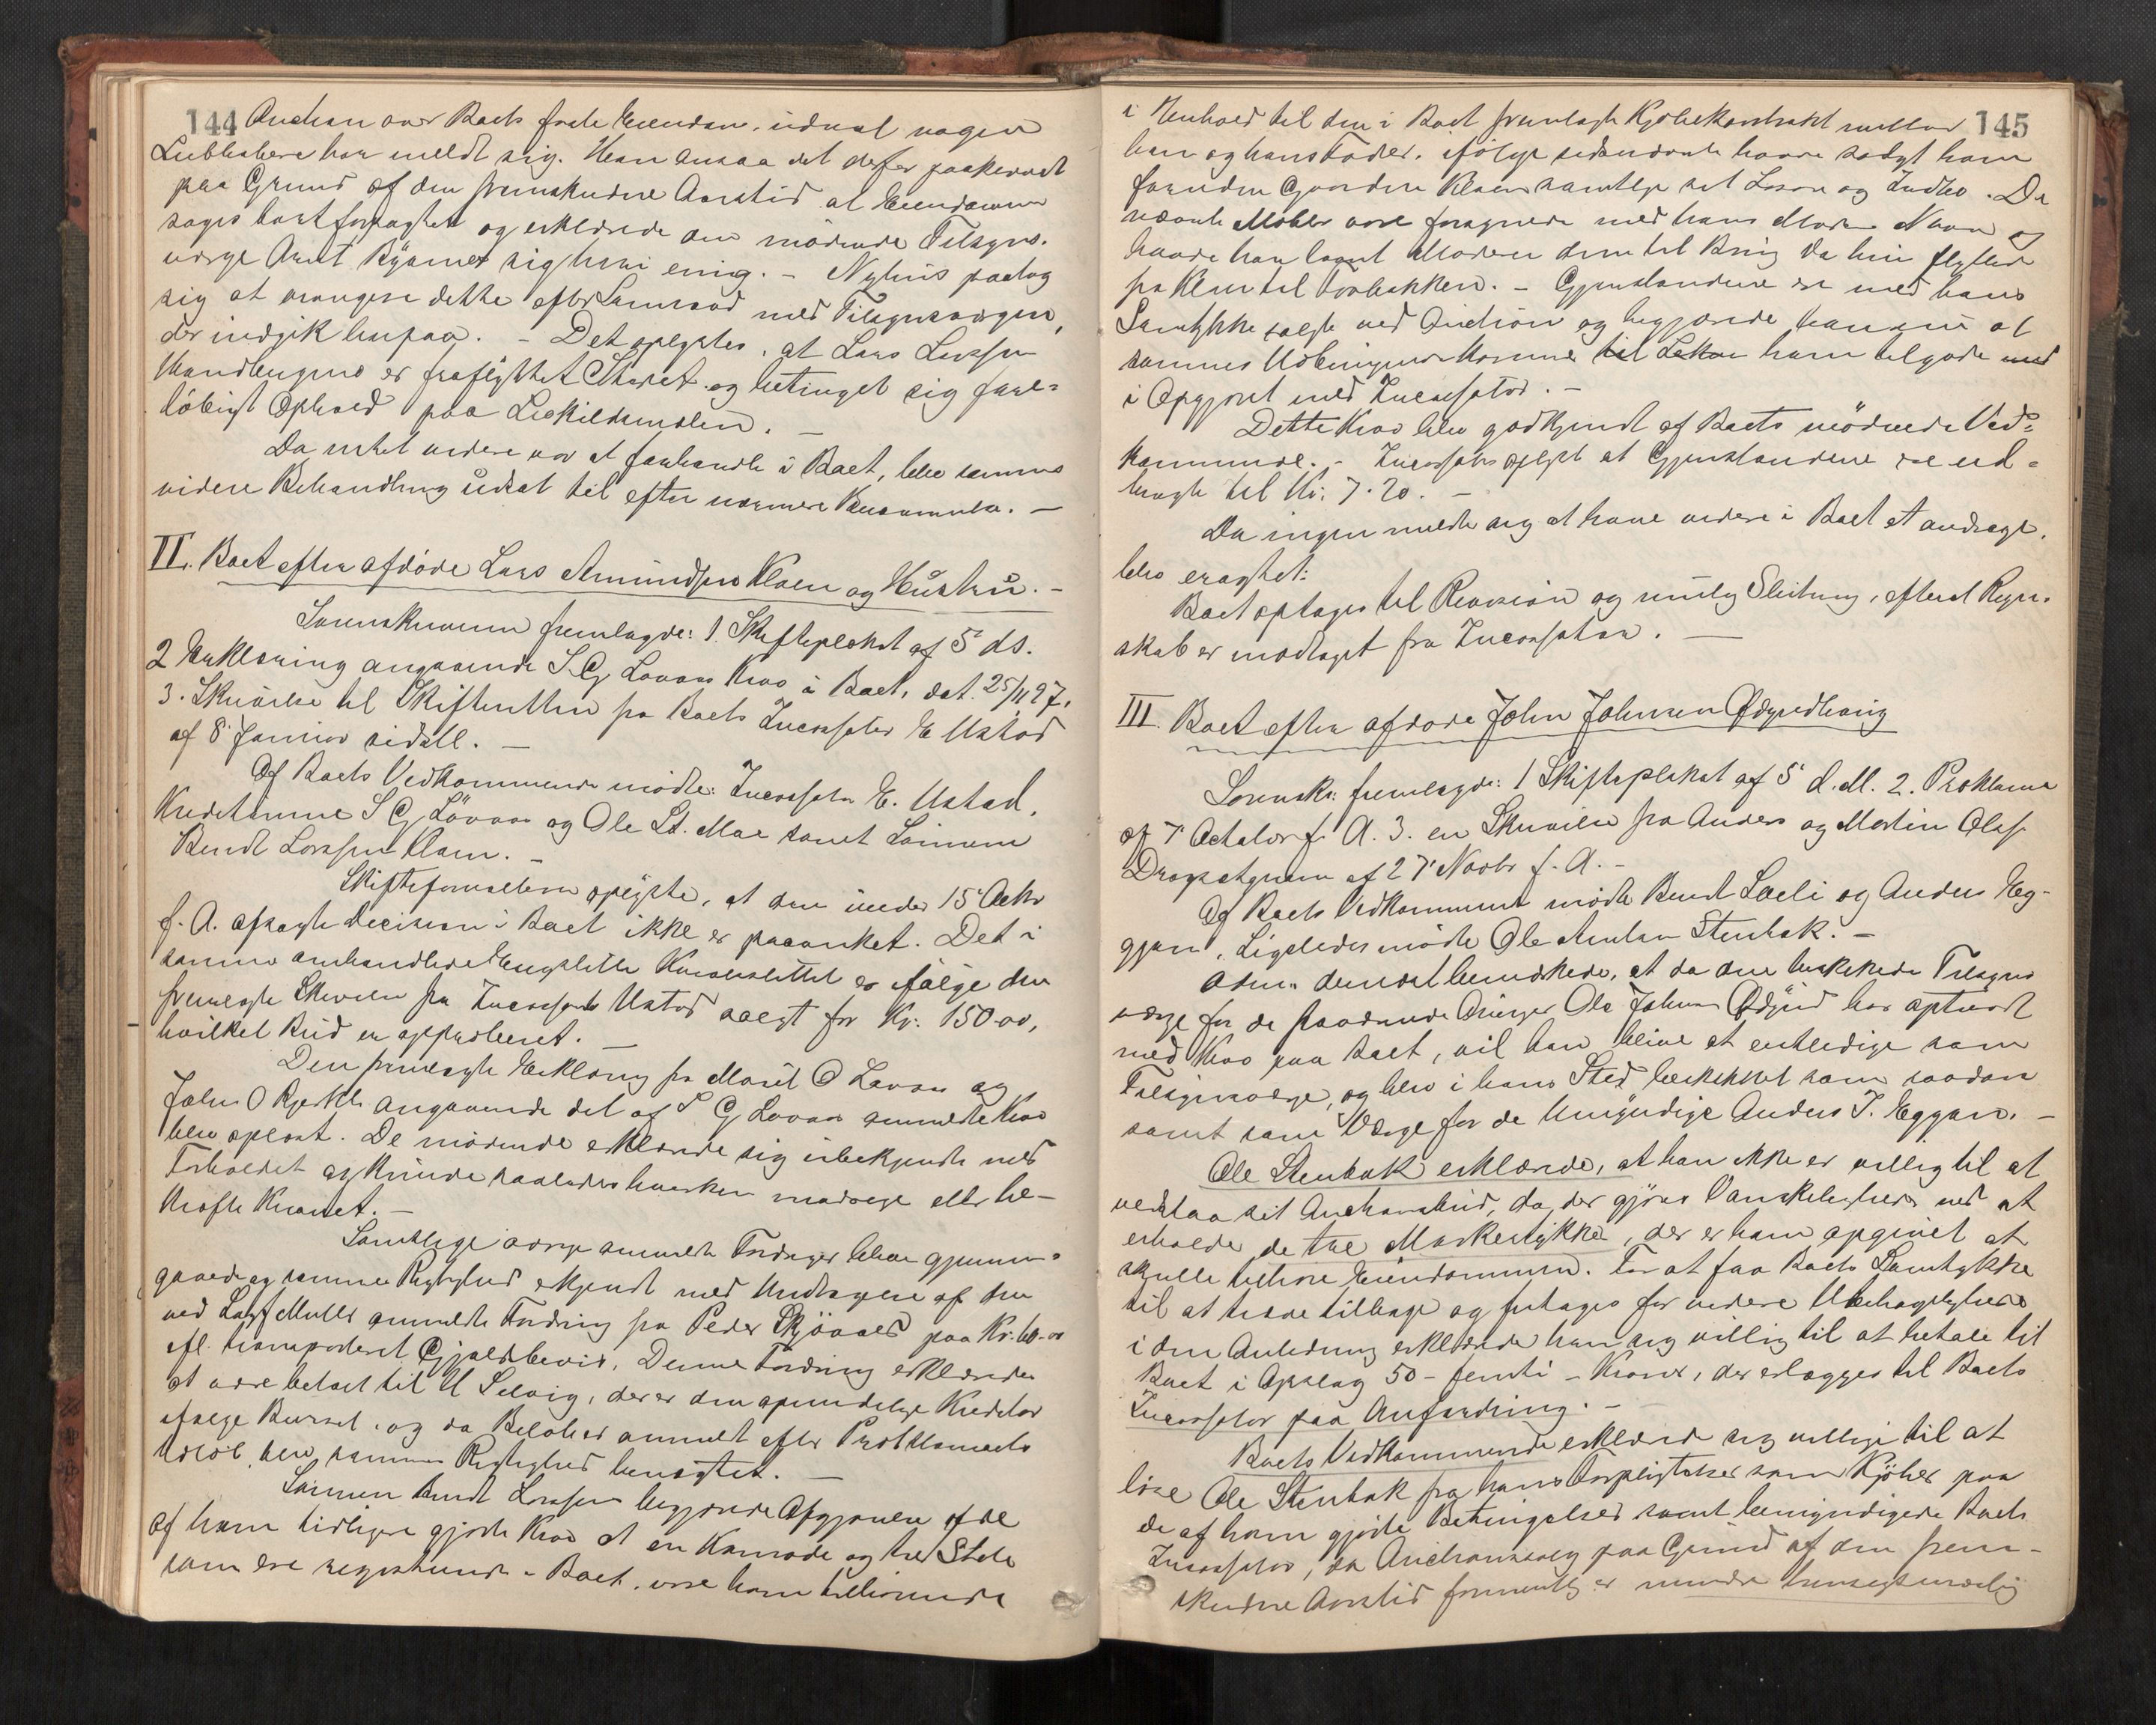 144 Auction over Boets faste Eiendom, uden at nogen
Liebhabere har meldt sig. Han ansaa det derfor paakrævet
paa Grund af den fremskredne Aarstid at Eiendommen
søges bortforpagtet og erklærede den mødende Tilsyns-
værge Arnt sig heri enig. – Nyhus paatog
sig at arrangere dette efter Samraad med Tilsynsværgen,
der indgik herpaa. – Det oplystes, at Lars Larssen
er fraflyttet Stedet og betinget sig fore-
löbigt Ophold paa
Da intet videre var at forhandle i Boet, blev sammes
videre Behandling udsat til efter nærmere Bekjendtgjørelse. –
II. Boet efter afdøde Lars Amundsen Kloen og Hustru. –
Sorenskriveren fremlagde: 1. Skifteplakat af 5' ds.
2 Erklæring angaaende S. G. Løvaas Krav i Boet, dat. 25/11 97,
3. Skrivelse til Skifteretten fra Boets Incassator E Ustad
af 8' Januar sidstl. –
Af Boets Vedkommende mødte: Incassator E. Ustad,
Kreditorerne S G Løvaas og Ole St. Moe samt Sønnen
Bendt Larssen Kloen. –
Skifteforvalteren oplyste, at den under 15' Octbr
f. A. afsagte Decision i Boet ikke er paaanket. Det i
samme omhandlede Engslette Kvernslettet er ifølge den
fremlagte Skrivelse fra Incassator Ustad solgt for Kr. 150.00,
hvilket Bud er approberet. –
Den fremlagte Erklæring fra Marit O Løvaas og
John O angaaende det af S G Løvaas anmeldte Krav
blev oplæst. De mødende erklærede sig ubekjendte med
Forholdet og kunde saaledes hverken modsige eller be-
kræfte Kravet. –
Samtlige øvrige anmeldte Fordringer bleve gjennem-
gaaede og sammes Rigtighed erkjendt med Undtagelse af den
ved anmeldte Fordring fra Peder paa Kr. 60.00
ifl. transporteret Gjældsbevis. Denne Fordring erklæredes
at være betalt til U Selvig, der er den oprindelige Kreditor
ifølge Beviset, og da Beløbet er anmeldt efter Proklamaets
Udløb, blev sammes Rigtighed benægtet. –
Sønnen Bendt Larssen begjærede Afgjørelse af det
af ham tidligere gjorte Krav at en Komode og tre Stole
som ere registrerede i Boet, vare ham tilhørende
145
i Henhold til den i Boet fremlagte Kjøbekontrakt mellem
ham og hans Fader, ifølge sidstnævnte havde solgt ham
foruden Gaarden Kloen samtlige sit Løsøre og Indbo. De
nævnte Møbler vare forsynede med hans Moders Navn og
havde han laant Moderen dem til Brug da hun flyttede
fra Kloen til . – Gjenstandene ere med hans
Samtykke solgte ved Auction og begjærede han nu at
sammes Udbringende komme til ham tilgode med
i Opgjøret med Incassator. –
Dette Krav blev godkjendt af Boets mødende Ved-
kommende. – Incassator oplyste at Gjenstandene ere ud-
bragte til Kr. 7.20. –
Da ingen meldte sig at have videre i Boet at andrage,
blev eragtet:
Boet optages til Revision og mulig Slutning, efterat Regn-
skab er modtaget fra Incassator. –
III. Boet efter afdøde John Johnsen Ødegrdhaug
Sorenskr. fremlagde: 1 Skifteplakat af 5' d. M. 2. Proklama
af 7' October f. A. 3. en Skrivelse fra Anders og Martin Olsen
af 27' Novbr f. A. –
Af Boets Vedkommende mødte Bendt Lœli og Anders Eg-
gan. Ligeledes mødte Ole Arntsen Stenbak. –
Adm. dernæst bemærkede, at da den beskikkede Tilsyns-
værge for de fraværende Arvinger Ole Johnsen har optraadt
med Krav paa Boet, vil han blive at entledige som
Tilsynsværge, og blev i hans Sted beskikket som saadan
samt som Værge for de Umyndige Anders J. Eggan. –
Ole Stenbak erklærede, at han ikke er villig til at
vedstaa sit Auctionsbud, da der gjøres Vanskeligheder ved at
erholde de tre Markestykker, der er ham opgivet at
skulle tilhøre Eiendommen. For at faa Boets Samtykke
til at træde tilbage og fritages for videre Ubehageligheder
i den Anledning erklærede han sig villig til at betale til
Boet i Opslag 50 – femti – Kroner, der erlægges til Boets
Incassator paa Anfordring. –
Boets Vedkommende erklærede sig villige til at
løse Ole Stenbak fra hans Forpligtelser som Kjøber paa
de af ham gjorte Betingelser samt bemyndigede Boets
Incassator, da Auctionssalg paa Grund af den frem-
skredne Aarstid formentlig er mindre hensigtsmæssig